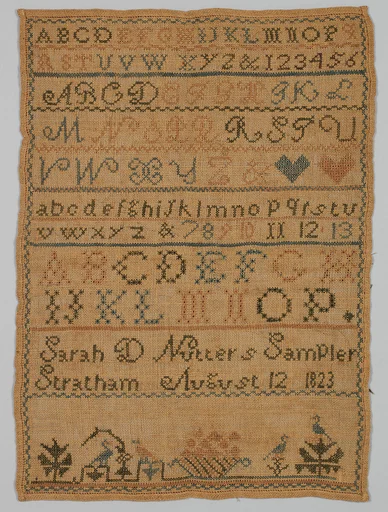 ABCD EFGHIJKLMNOPQ
RSTUVWXYZ&123456
ABCD EFGH IKL
M NOPQ RSTU
VWXYZ &
abcdefghijklmnopqrstu
vwxyz &789 10 11 12 13
ABCDEFGH
IJKLMNOP.
Sarah D Nutters Sampler
Stratham August 12 1823